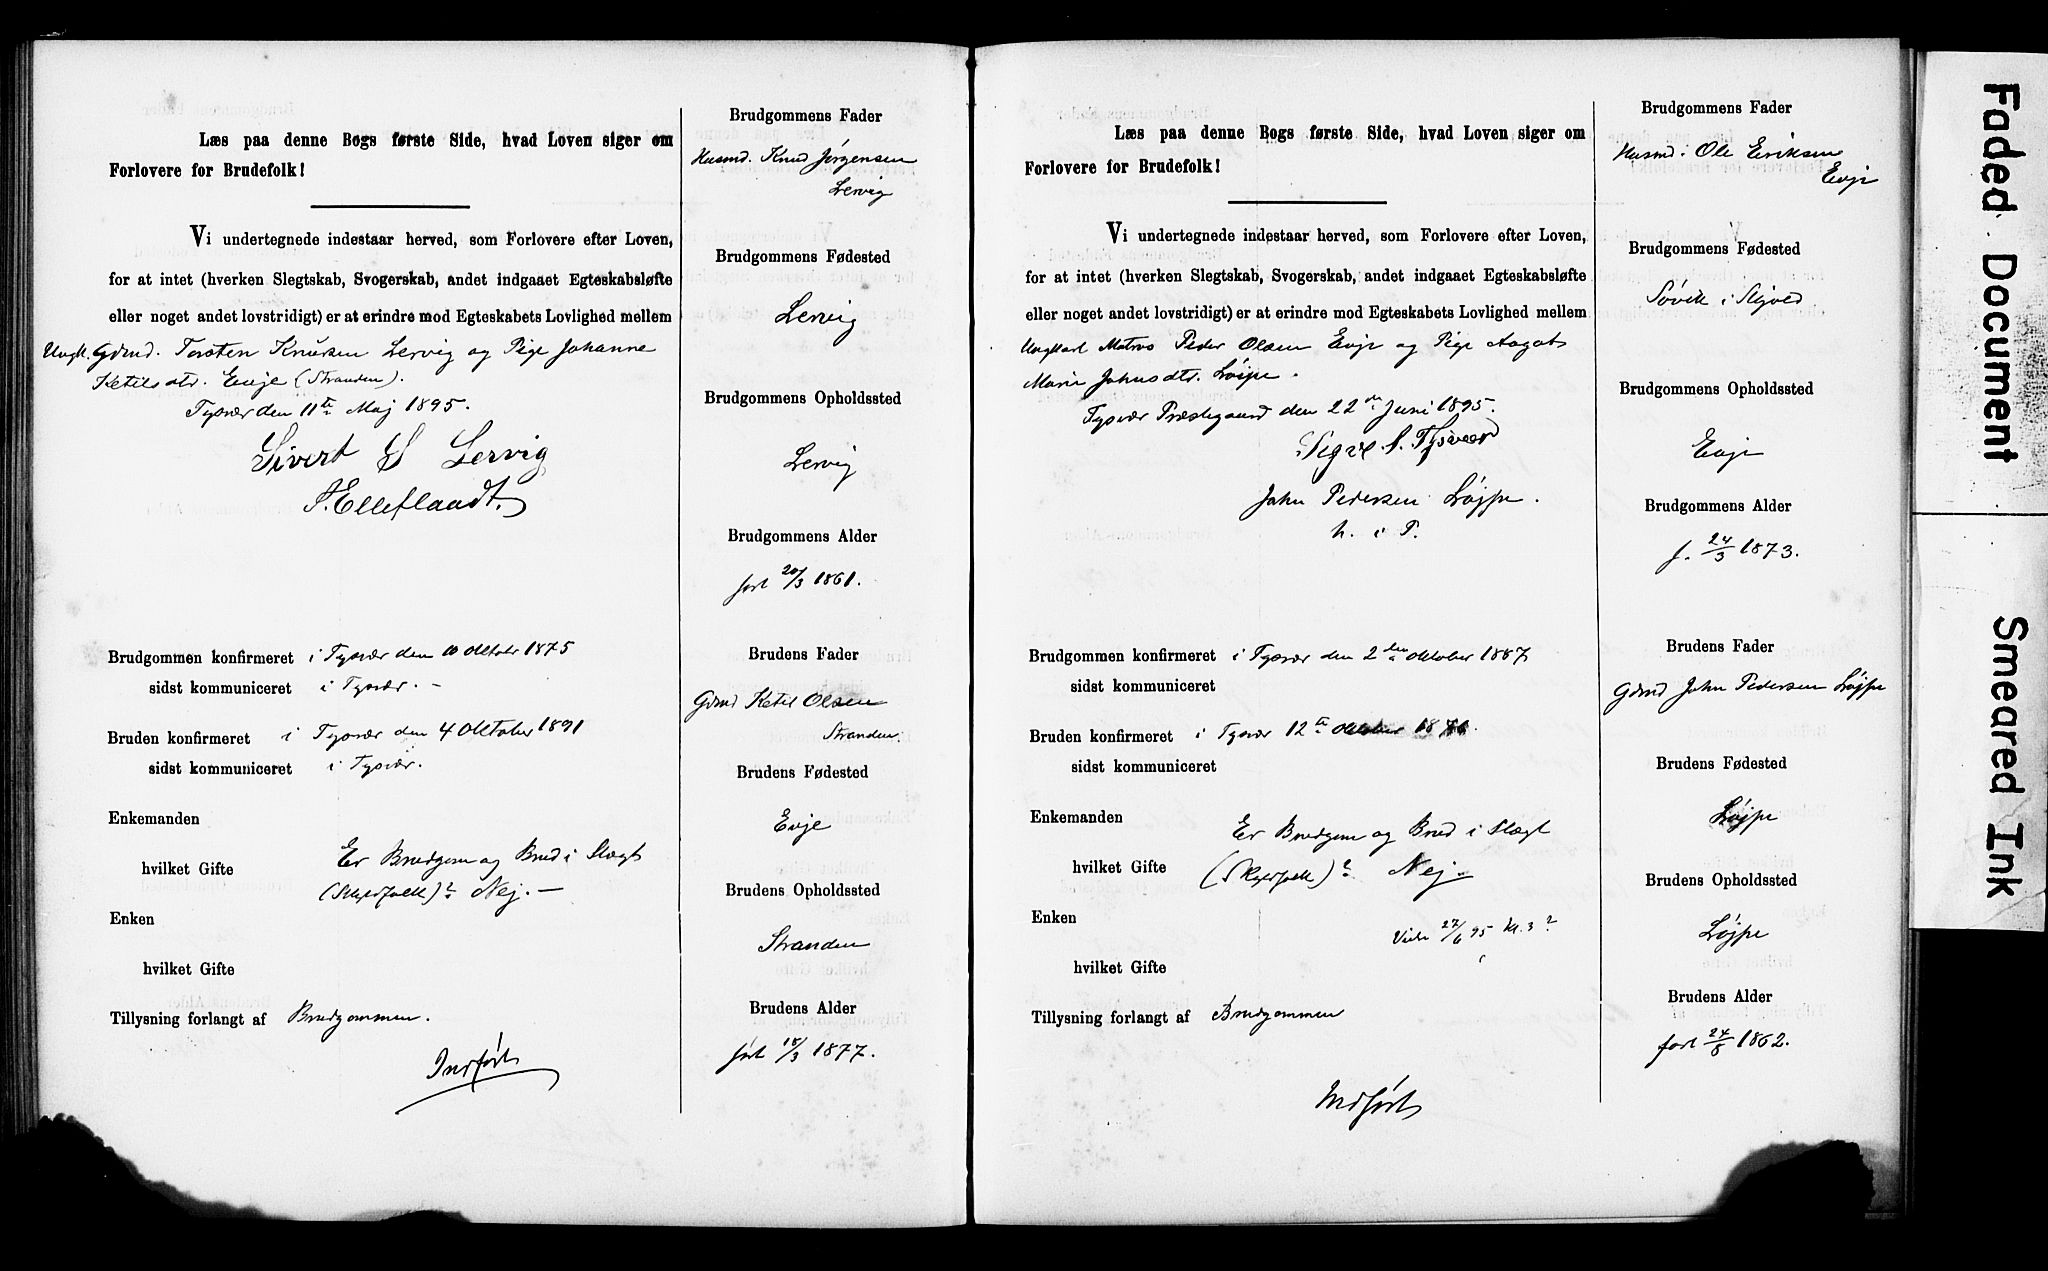 Læs paa denne Bogs første Side, hvad Loven siger om
Forlovere for Brudefolk!
Vi undertegnede indestaar herved, som Forlovere efter Loven,
for at intet (hverken Slegtskab, Svogerskab, andet indgaaet Egteskabsløfte
eller noget andet lovstridigt) er at erindre mod Egteskabets Lovlighed mellem
Ungk. Gdmd. Torsten Knutsen Lervig og Pige Johanne
Ketilsdtr. Evje (Stranden).
Tysvær den 11te Maj 1895.
Sivert S Lervig
S. Elleflaadt.
Brudgommen konfirmeret i Tysvær den 10 Oktobr 1875
sidst kommuniceret i Tysvær. –
Bruden konfirmeret i Tysvær den 4 Oktober 1891
sidst kommuniceret i Tysvær.
Enkemanden
Er Brudgom og Brud i Slægt
hvilket Gifte
(Skyldfolk)? Nej. –
Enken
hvilket Gifte
Tillysning forlangt af Brudgommen.
Indført
Brudgommens Fader
Husmd. Knud Jørgensen
Lervig
Brudgommens Fødested
Lervig
Brudgommens Opholdssted
Lervig
Brudgommens Alder
født 20/3 1861.
Brudens Fader
Gdmd Ketil Olsen
Stranden.
Brudens Fødested
Evje
Brudens Opholdssted
Stranden
Brudens Alder
født 18/3 1877.
Læs paa denne Bogs første Side, hvad Loven siger om
Forlovere for Brudefolk!
Vi undertegnede indestaar herved, som Forlovere efter Loven,
for at intet (hverken Slegtskab, Svogerskab, andet indgaaet Egteskabsløfte
eller noget andet lovstridigt) er at erindre mod Egteskabets Lovlighed mellem
Ungkarl Matros Peder Olsen Evje og Pige Aagot
Marie Johnsdtr. Løipe.
Tysvær Præstegaard den 22de Juni 1895.
Sigve S. Tysvær
John Pedersen Løjpe.
h. i P.
Brudgommen konfirmeret i Tysvær den 2den Oktober 1887
sidst kommuniceret
Bruden konfirmeret i Tysvær 12te Oktober
sidst kommuniceret
Enkemanden
Er Brudgom og Brud i Slægt
hvilket Gifte
(Skyldfolk)? Nej.
Enken
27/6 95 Kl. 3?
hvilket Gifte
Tillysning forlangt af Brudgommen
Indført
Brudgommens Fader
Husmd. Ole Eriksen
Evje
Brudgommens Fødested
Søvik i
Brudgommens Opholdssted
Evje
Brudgommens Alder
f. 24/3 1873.
Brudens Fader
Gdmd John Pedersen Løjpe
Brudens Fødested
Løjpe
Brudens Opholdssted
Løjpe
Brudens Alder
født 24/8 1862.
Faded Document
Smeared Ink